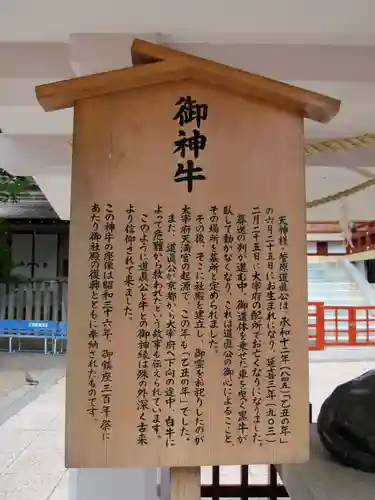 御神牛
天神様・菅原道真公は、承和十二年(八四五)「乙丑の年」
の六月二十五日にお生まれになり、延喜三年(九〇三)
二月二十五日に大宰府の配所でお亡くなりになりました。
墓送の列が進む中、御遺体を乗せた車を曳く黒牛が
臥して動かなくなり、これは道真公の御心によることと、
その場所を墓所と定められました。
その後、そこに社殿を建立し、御霊をお祀りしたのが
太宰府天満宮の起源で、この年も「乙丑の年」でした。
また、道真公が京都から大宰府へ下向の途中、白牛に
よって危難から救われたという故事も伝えられています。
このように道真公と牛との御神縁は殊の外深く古来
より信仰されて来ました。
この神牛の座像は昭和三十六年、御鎮座三百年祭に
あたり御社殿の復興とともに奉納されたものです。